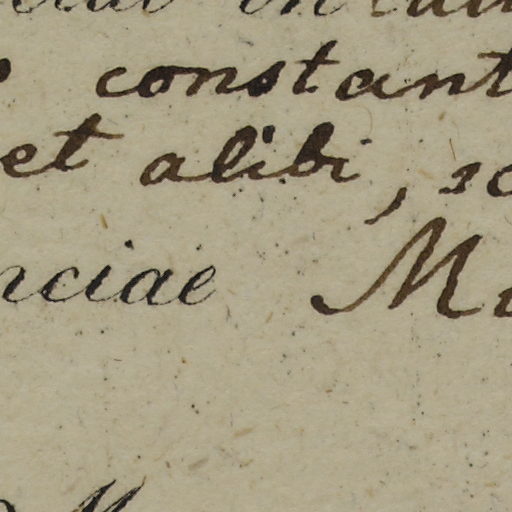 constant
et alibi, sc
nciae M